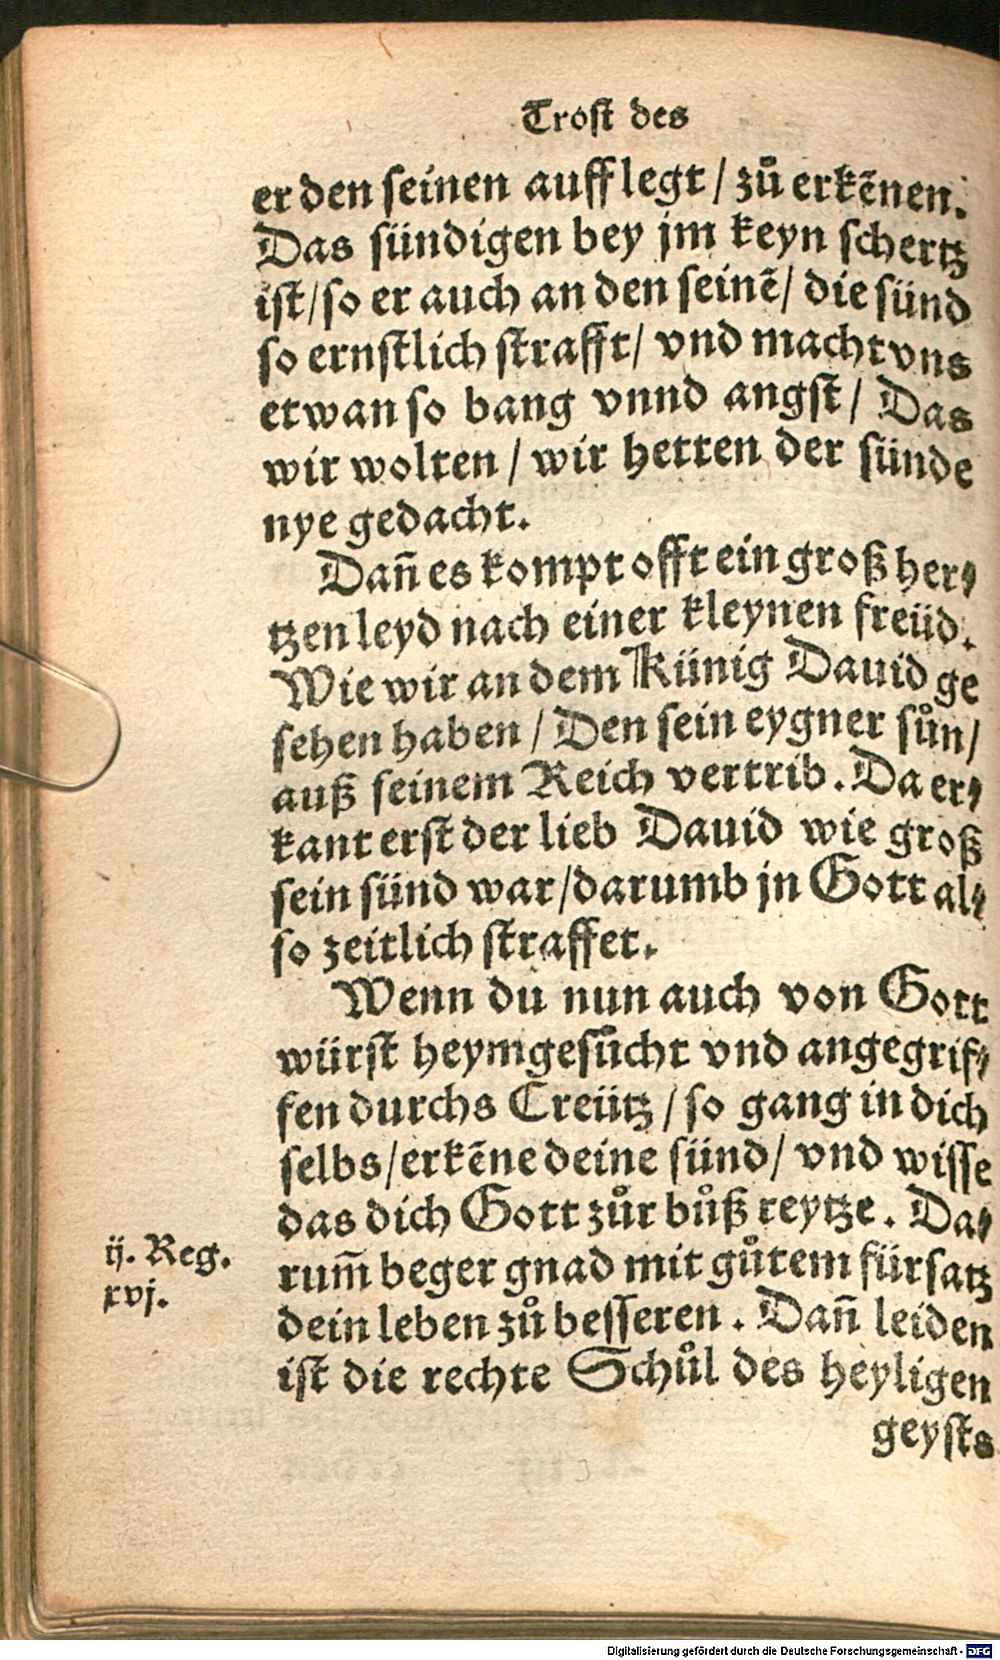 Trost des
er den seinen auff legt / zů erkẽnen.
Das sündigen bey jm keyn schertz
ist / so er auch an den seinẽ / die sünd
so ernstlich strafft / vnd macht vns
etwan so bang vnnd angst / Das
wir wolten / wir hetten der sünde
nye gedacht.
Dañ es kompt offt ein groß her⸗
tzen leyd nach einer kleynen freüd.
Wie wir an dem Künig Dauid ge
sehen haben / Den sein eygner sůn /
auß seinem Reich vertrib. Da er⸗
kant erst der lieb Dauid wie groß
sein sünd war / darumb jn Gott al⸗
so zeitlich straffet.
Wenn du nun auch von Gott
würst heymgesůcht vnd angegrif⸗
fen durchs Creütz / so gang in dich
selbs / erkẽne deine sünd / vnd wisse
das dich Gott zůr bůß reytze. Da⸗
rum̃ beger gnad mit gůtem fürsatz
dein leben zů besseren. Dañ leiden
ist die rechte Schůl des heyligen
geysts
ij. Reg.
xvj.
Digitalisierung gefördert durch die Deutsche Forschungsgemeinschaft - DFG